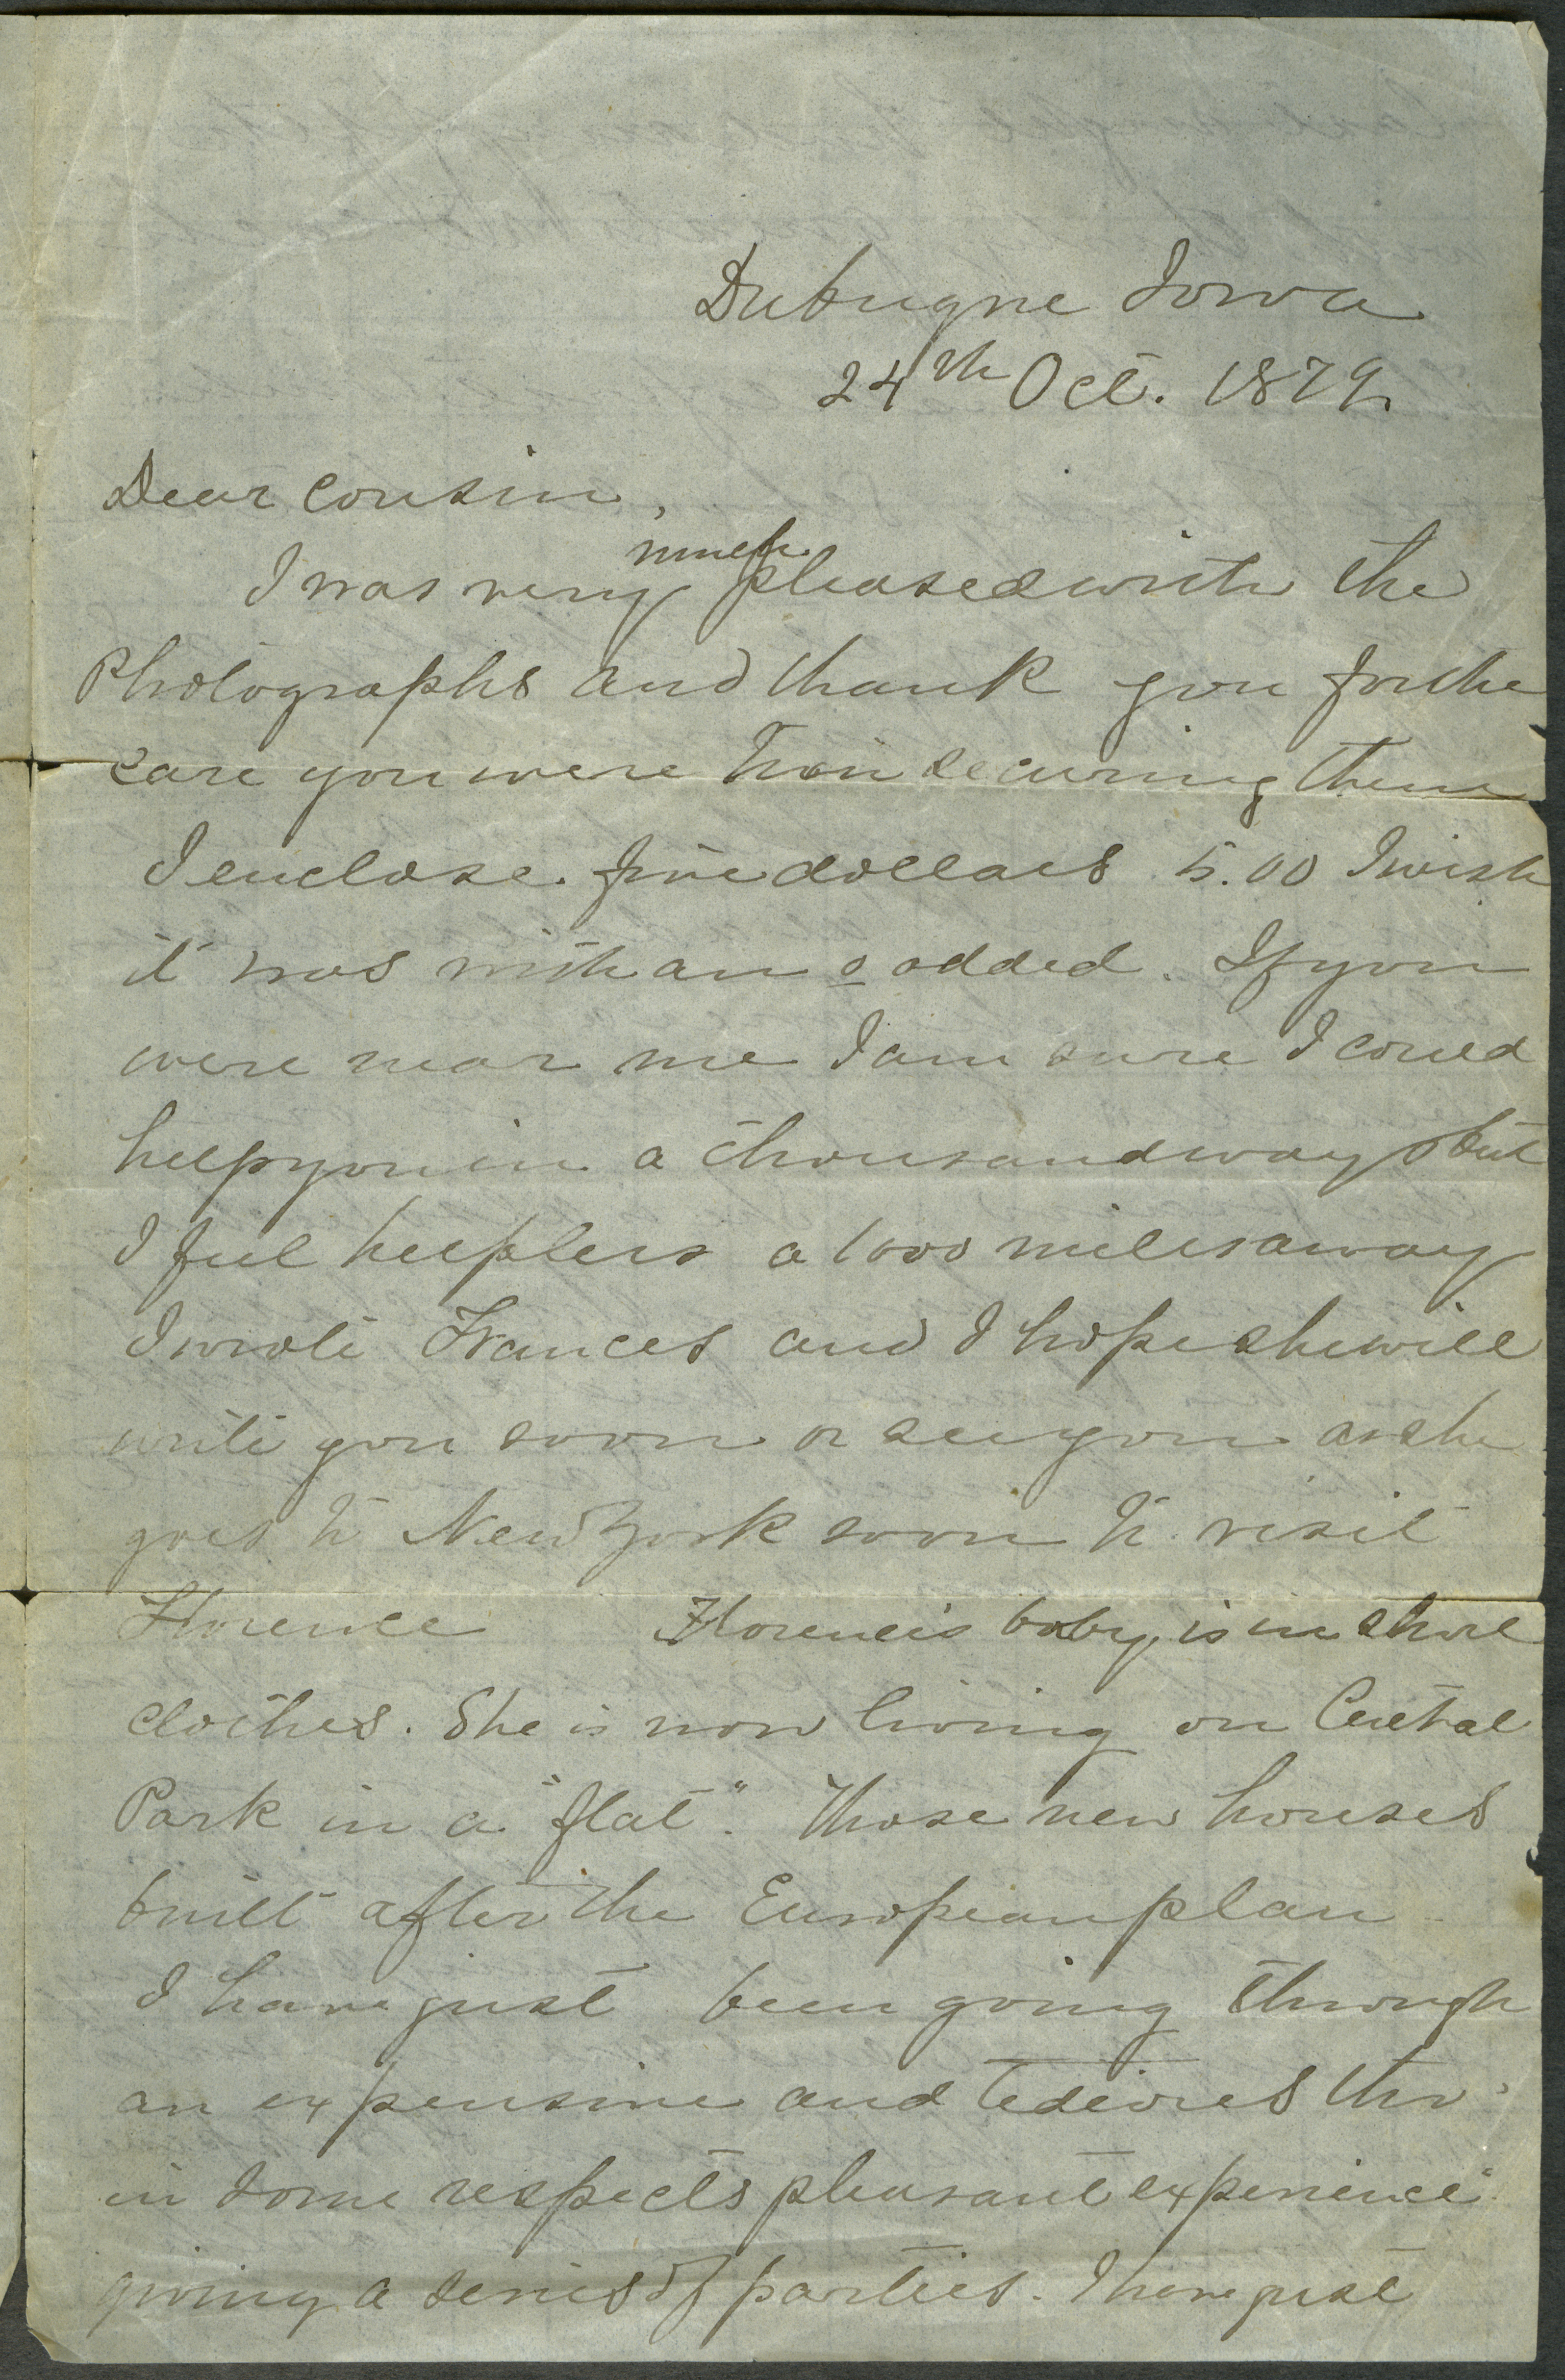 Dubuque Iowa
24th Oct. 1879.
Dear cousin,
much
I was very pleased with the
Photographs and thank you for the
care you were to in securing them
I enclose five dollars 5.00 I wish
it was with an o added. If you
were near me I am sure I could
help you in a thousand ways but
I feel helpless a 1000 miles away
I wrote Frances and I hope she will
write you soon or see you as she
goes to New York soon to visit
Florence Florence's baby is in short
clothes. She is now living on Central
Park in a "flat". Those new houses
built after the European plan
I have just been going through
an expensive and tedious tho'
in some respects pleasant experience
giving a series of parties. I have just